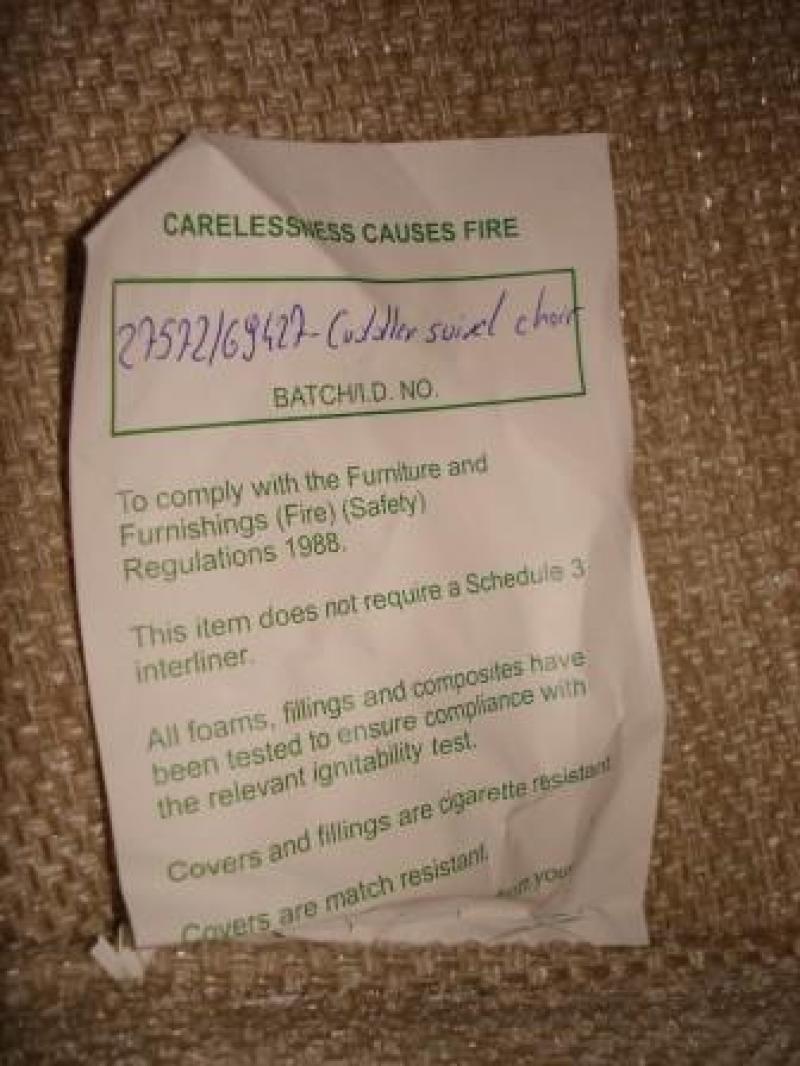 CARELESSNESS CAUSES FIRE
27572/69427- Cuddler swivel chair
BATCH/I.D. NO.
To comply with the Furniture and
Furnishings (Fire) (Safety)
Regulations 1988.
This item does not require a Schedule 3
interliner.
All foams, fillings and composites have
been tested to ensure compliance with
the relevant ignitability test.
Covers and fillings are cigarette resistant
Covers are match resistant.
your